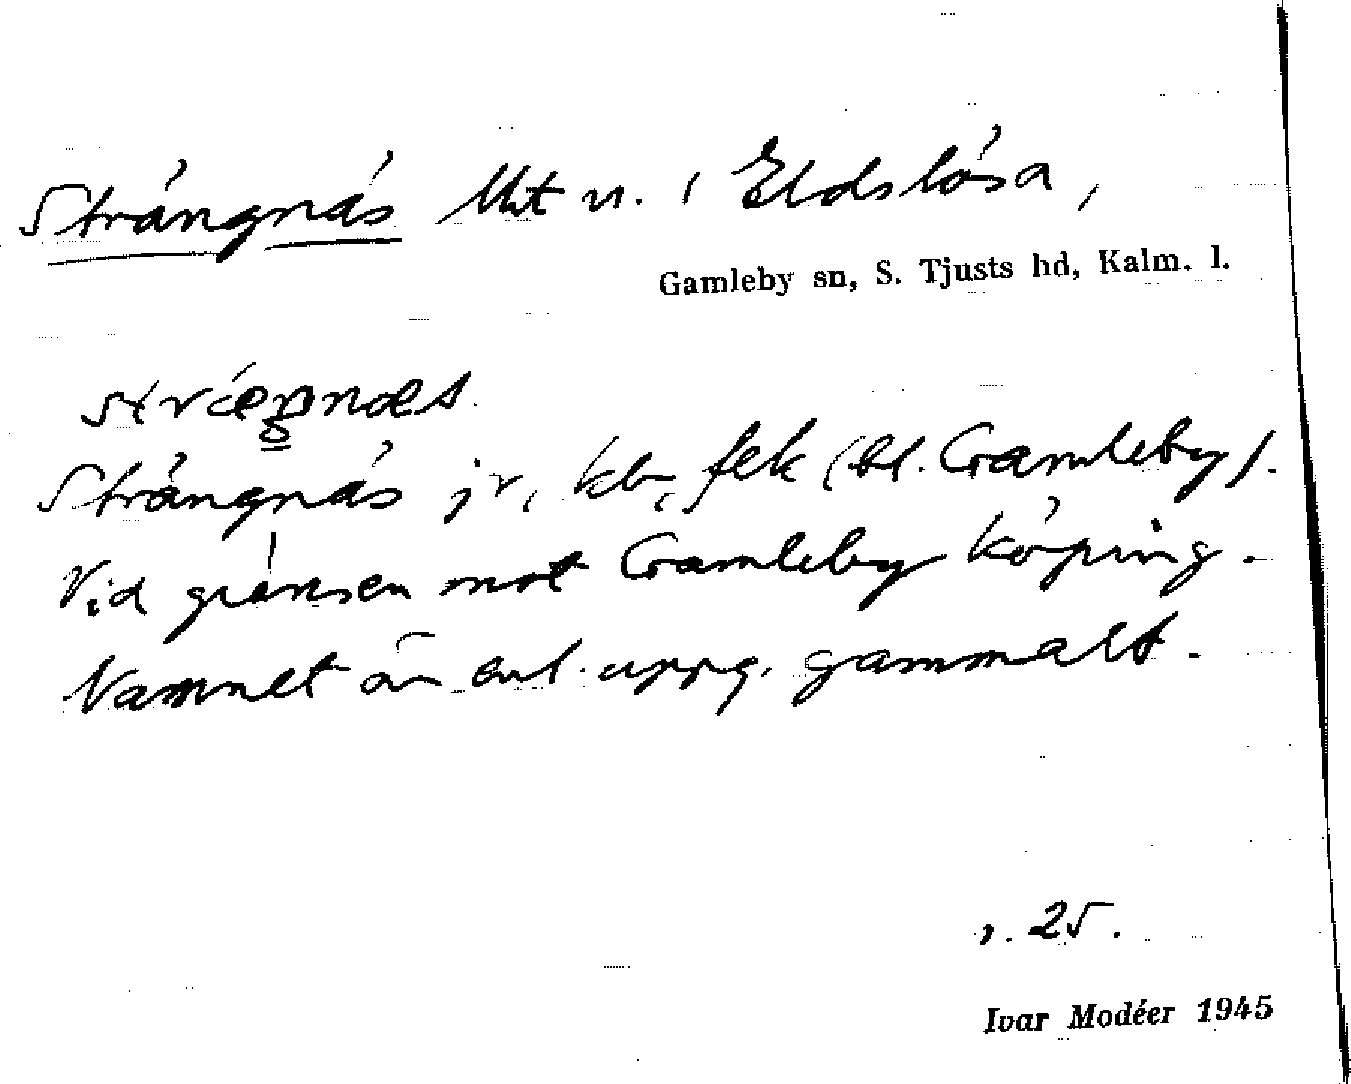 Strängnäs lht u. i Eldslösa,
Gamleby sn, S. Tjusts hd, Kalm. l.
stræŋnæs
Strängnäs jr, kb, fek (bl. Gamleby).
Vid gränsen mot Gamleby köping.
Namnet är enl. uppg. gammalt.
r. 25.
Ivar Modéer 1945